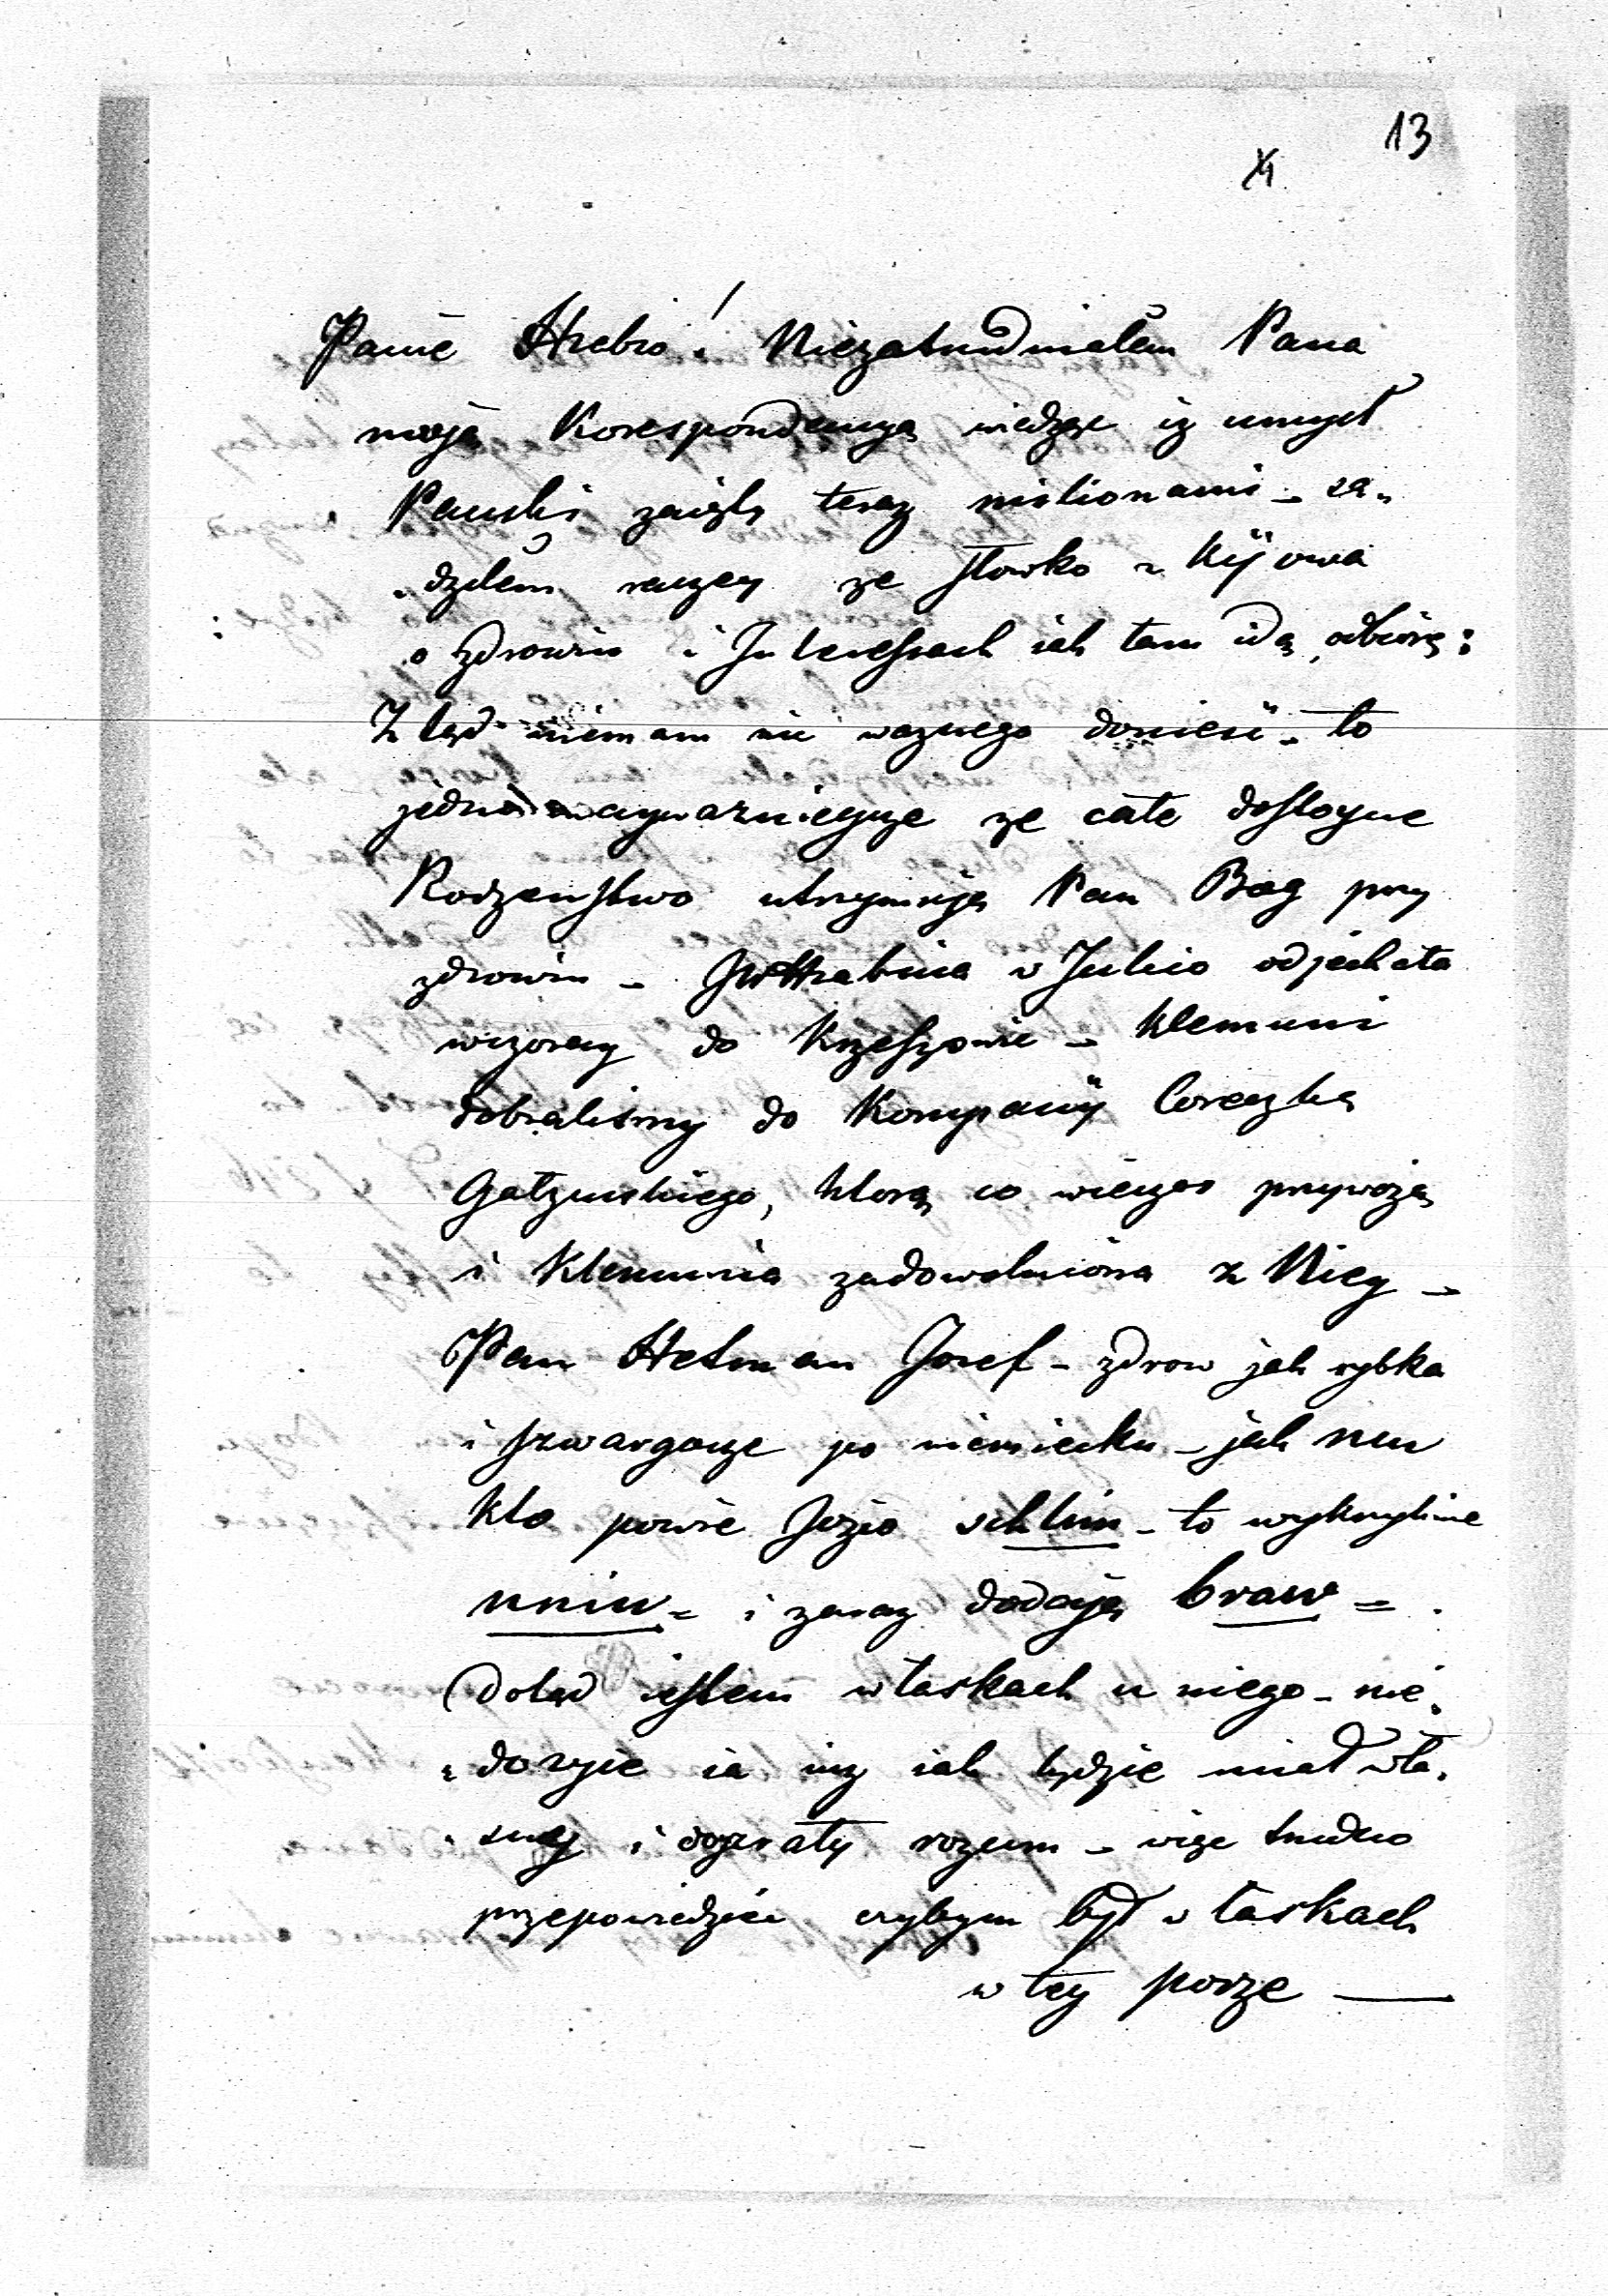 13
Panie Hrabio! Niezatrudniałem Pana
moją Korespondencyą wiedząc iz umysł
Pański zaięty teraz milionami - są„
„dziłem raczey ze słowko z Kijowa
o zdrowiu i Interessach iak tam idą, odbiorę:
Z tąd niemam nic waznego donieść - to
jedno naywaznieysze ze całe dostoyne
Rodzenstwo utrzymuje Pan Bog przy
zdrowiu - JW Hrabina w Julio odjechała
wczoray do Krzeszowic - Klemuni
dobraliśmy do Kompanij Coreczkę
Gałzinskiego, ktorą co wieczor przywożą
i Klemunia zadowolniona z Niey -
Pan Hetman Josef - zdrow jak rybka
i szwargocze po niemiecku - jak mu
kto powie Jozio schlim - to wykrzyknie
nniu = i zaraz dodaje braw =
Dotąd iestem w łaskach u niego - nie„
„dozyie ia iuz iak będzie miał wła„
„sny i doyrzały rozum - więc trudno
przepowiedzieć czybym był w łaskach
w tey porze —